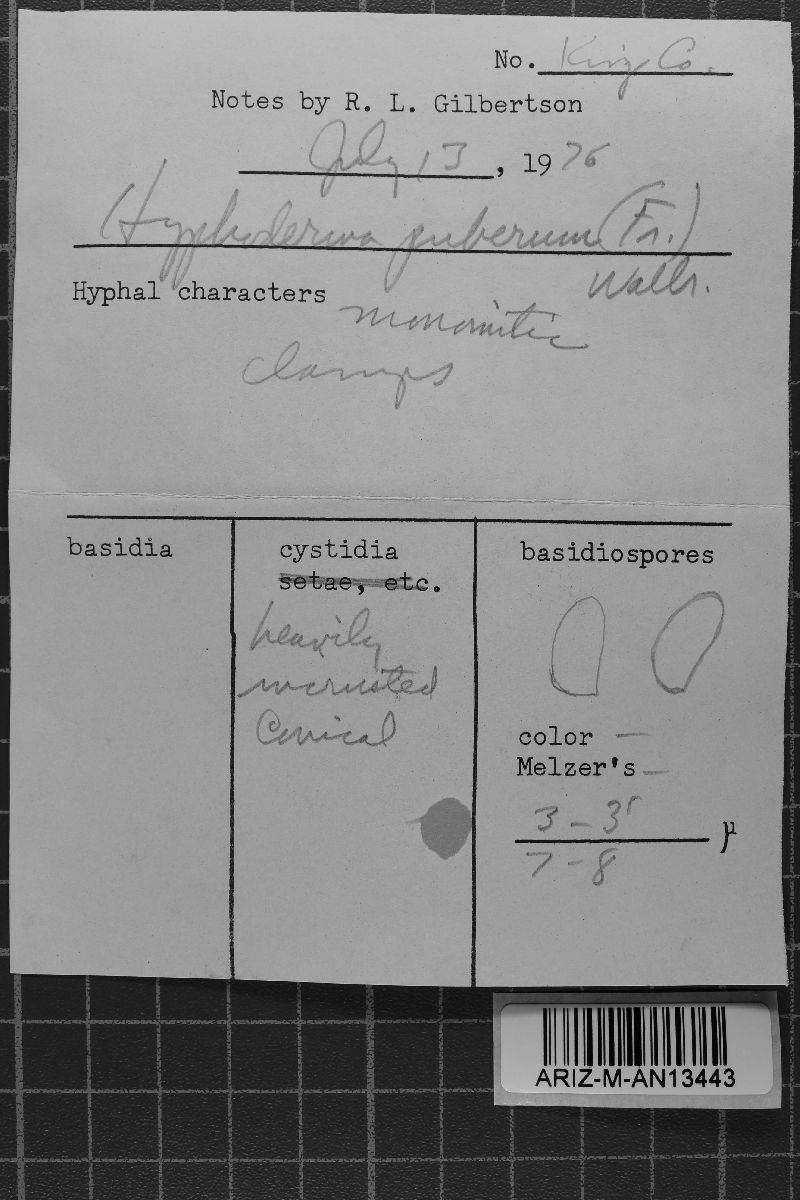 No. King Co.
Notes by R. L. Gilbertson
July 13, 1976
Hyphoderma puberum (Fr.)
Wallr.
Hyphal characters monomitic
clamps
basidia
cystidia
setae, etc.
heavily
incrusted
Conical
basidiospores
color —
Melzer's —
3 - 3⁵ µ
7 - 8
ARIZ-M-AN13443